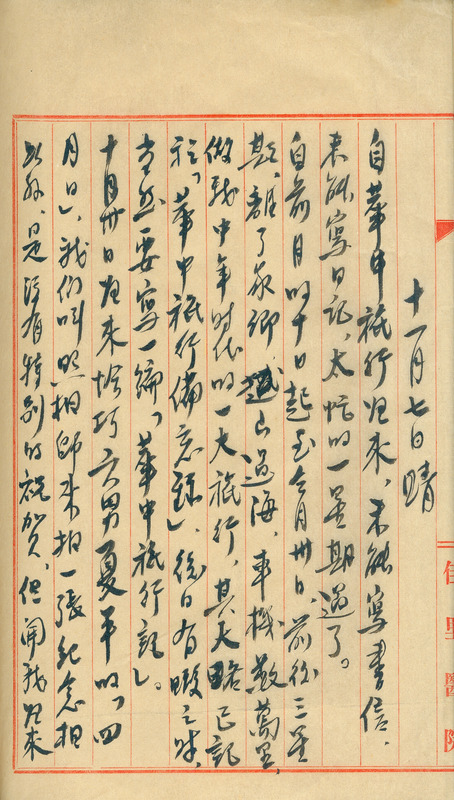 十一月七日晴
自華中旅行歸來，未能寫書信，
未能寫日記，太忙的一星期過了。
自前月的十日起至今月卅日，前後三星
期，離了家鄉，越山過海，車機數萬里，
做我中年時代的一大旅行，其大略已記
在「華中旅行備忘錄」，後日有暇之時，
當然要寫一編「華中旅行記」。
十月卅日歸來恰巧六男夏平的「四
月日」，我們叫照相師來拍一張紀念相
此外，是沒有特別的祝賀，但聞我歸來
佳里醫院